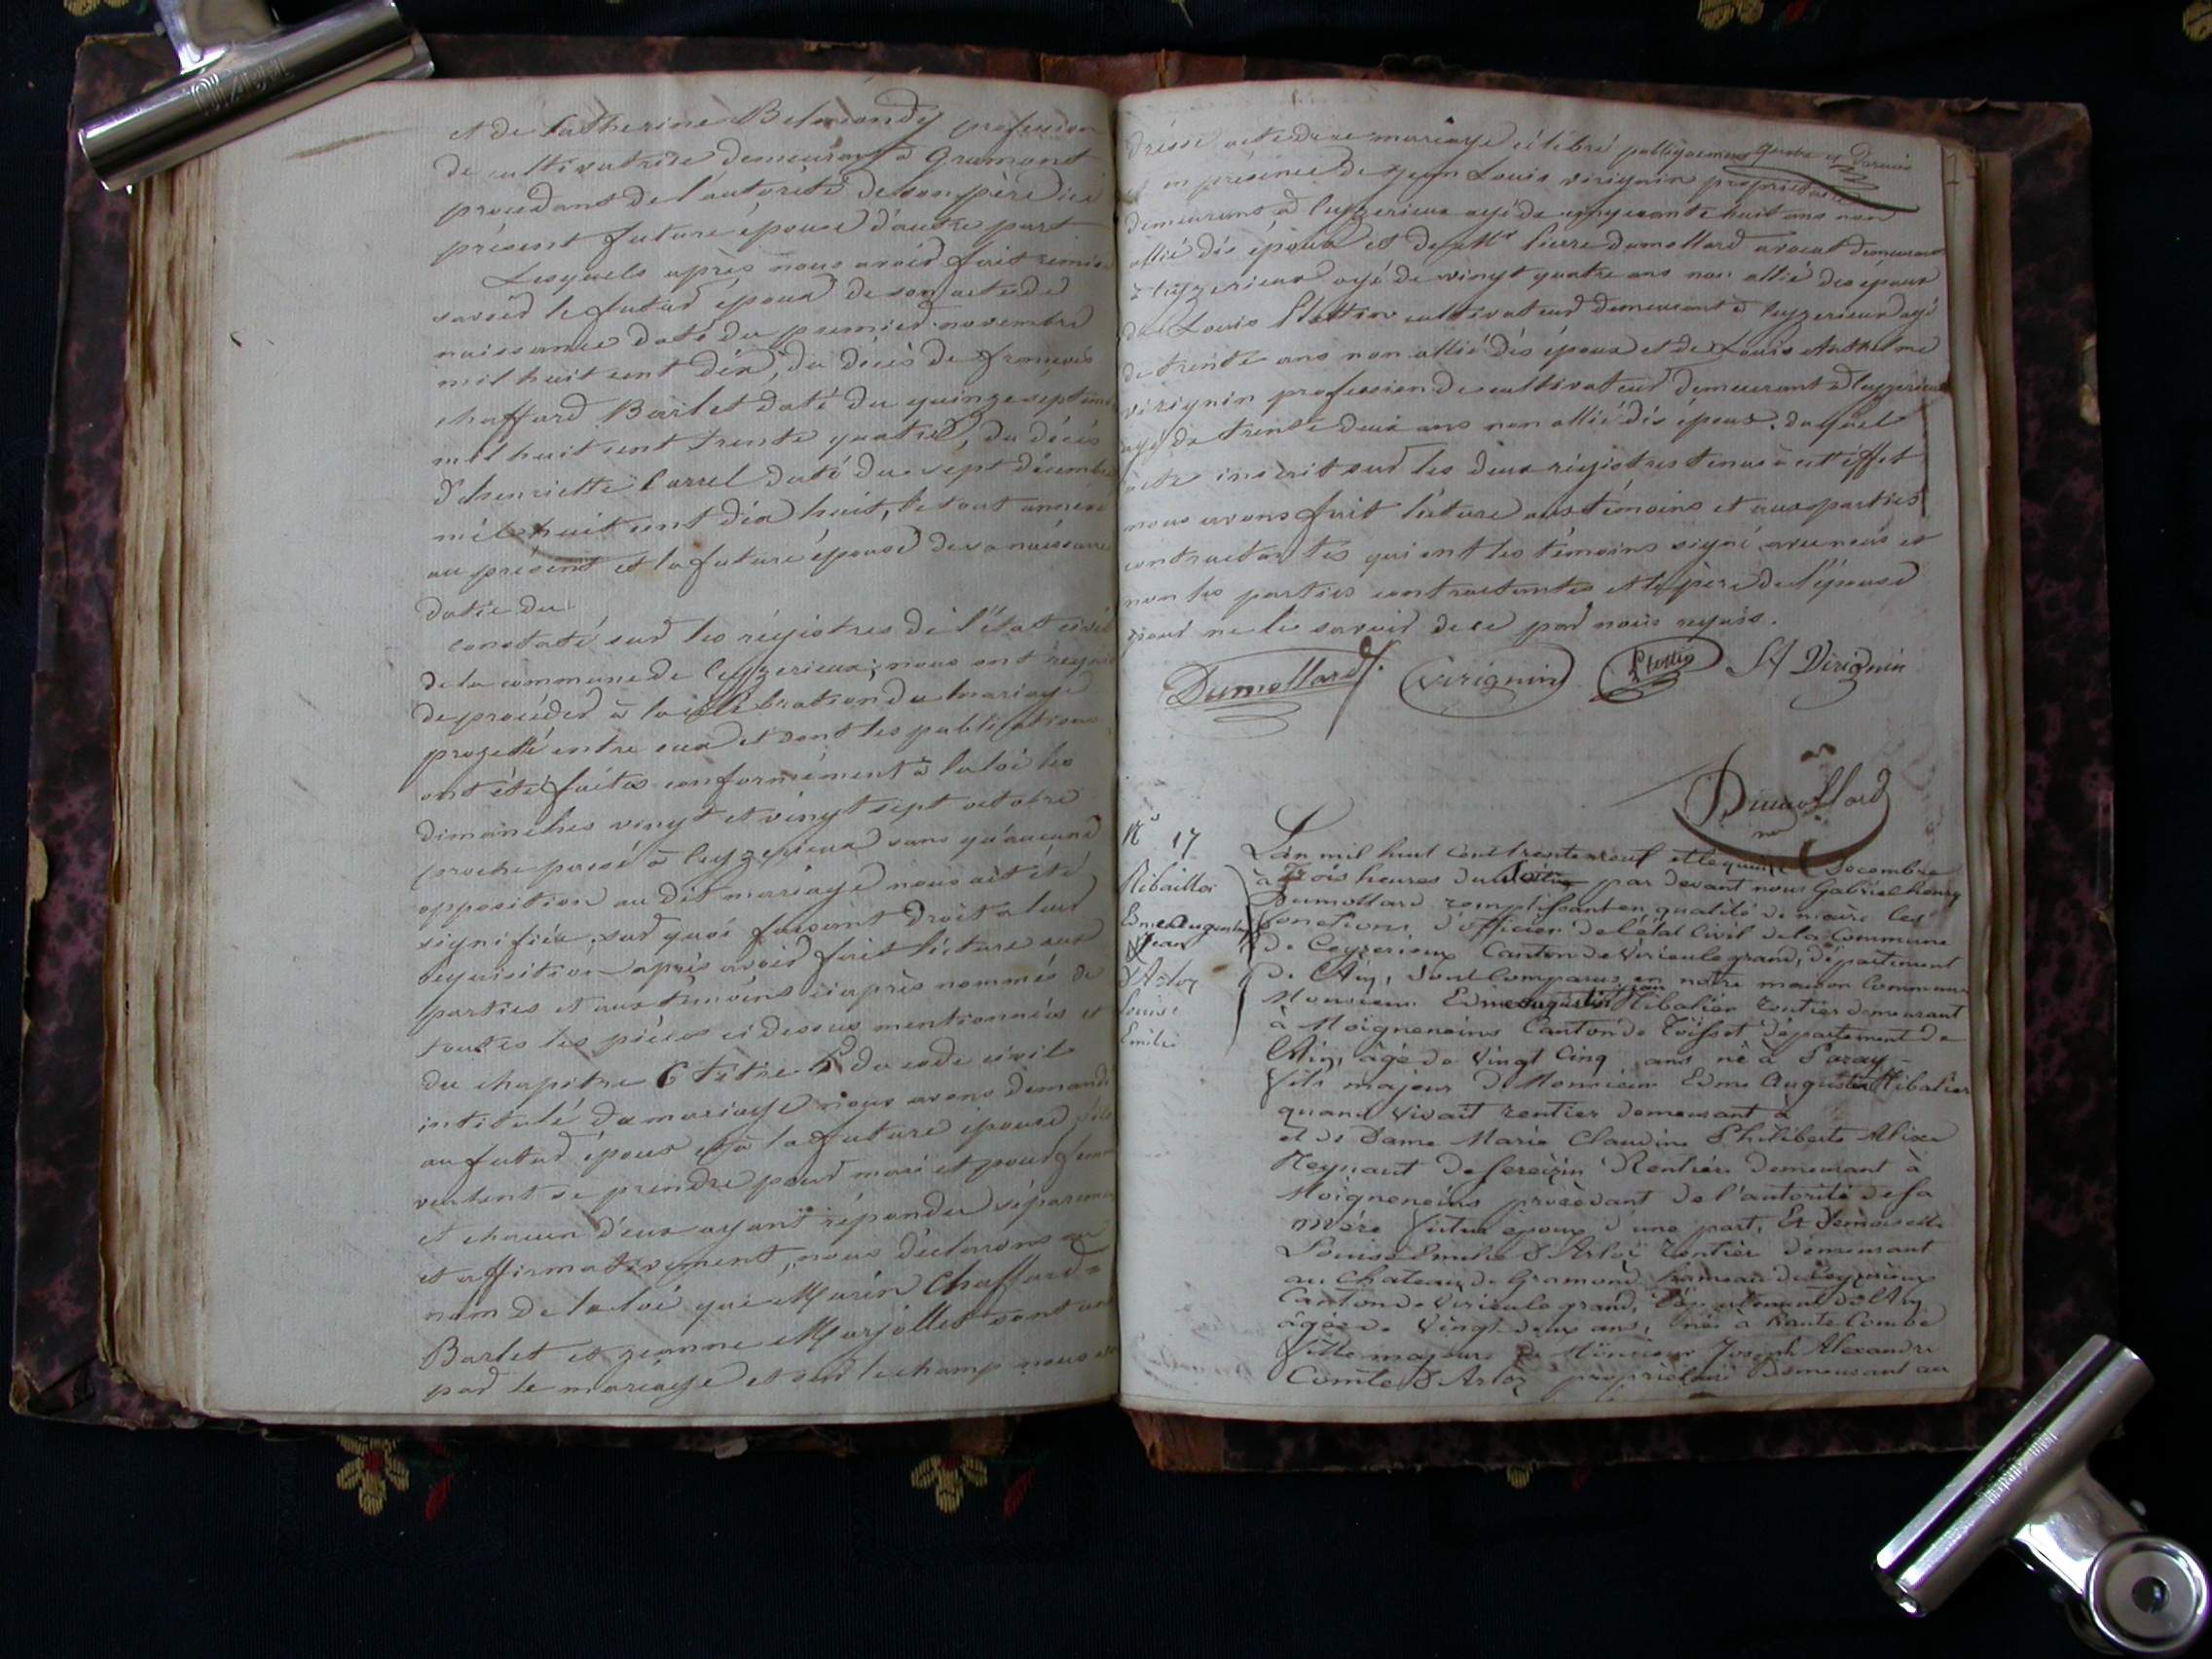 et de Catherine Belmondy profession
de cultivatrice demeurant à Gramont
procédant de l'autorité de son père ici
présent future épouse d'autre part
Lesquels après nous avoir fait remise
savoir le futur époux de son acte de
naissance daté du premier novembre
mil huit cent dix, du décès de françois
chaffard Barlet daté du quinze septembre
mil huit cent trente quatre, du décès
d'henriette Carrel daté du sept décembre
mil huit cent dix huit, le tout annexé
au présent et la future épouse de sa naissance
datée du
constaté sur les régistres de l'état civil
de la commune de Ceyzerieux; nous ont requis
de procéder à la célébration du mariage
projetté entre eux et dont les publications
ont été faites conformément à la loi les
dimanches vingt et vingt sept octobre
proche passé à Ceyzerieux sans qu'aucune
opposition au dit mariage nous ait été
signifiée, sur quoi faisant droit à leur
réquisition après avoir fait lecture aux
parties et aux témoins ci après nommés de
toutes les pièces ci dessus mentionnées et
du chapitre 6 titre 5 du code civil
intitulé du mariage nous avons demandé
au futur époux et à la future épouse s'ils
veulent se prendre pour mari et pour femme
et chacun d'eux ayant répondu séparement
et affirmativement, nous déclarons au
nom de la loi que Marin Chaffard=
Barlet et jeanne Marjollet sont unis
par le mariage et sur le champ nous avons
dressé acte de ce mariage célébré publiquement
et en présence de jean Louis virignin propriétaire
demeurant à Ceyzerieux agé de cinquante huit ans non
allié des époux et de Mr pierre dumollard avocat demeurant
à Ceyzerieux agé de vingt quatre ans non allié des époux
de Louis Plottin cultivateur demeurant à Ceyzerieux agé
de trente ans non allié des époux et de Louis Anthelme
virignin profession de cultivateur demeurant à Ceyzerieux
agé de trente deux ans non allié des époux. duquel
acte inscrit sur les deux régistres tenus à cet effet
nous avons fait lecture aux témoins et aux parties
contractantes qui ont les témoins signé avec nous et
non les parties contractantes et le père de l'épouse
pour ne le savoir de ce par nous requis.
Dumollard Virignin Plottin LA Virignin
Dumollard
N° 17
Ribailler
Edme Augustin
Jean
D'Arloz
Louise
Emilie
L'an mil huit cent trente neuf et le quinze Décembre
à Trois heures du par devant nous Gabriel henry
Dumollard remplissant en qualité de maire les
fonctions d'officier de l'état Civil de la Commune
de Ceyzerieux Canton de Virieu le grand, département
de l'Ain, sont Comparus en notre maison Commune
Monsieur Edme augustin jean Ribalier rentier demeurant
à Moigneneins Canton de Toissot département de
l'Ain, âgé de vingt cinq ans né à Paray
fils majeur de Monsieur Edme Augustin Ribalier
quand vivait rentier demeurant à
et de Dame Marie Claudine Philiberte Alixe
Reynaut de Serezin Rentière demeurant à
Moigneneins procédant de l'autorité de sa
mère futur époux d'une part, Et Demoiselle
Louise Emilie D'Arloz rentière demeurant
au Chateau de Gramond hameau de Ceyzerieux
Canton de Virieu le grand, Département de l'Ain
âgée de vingt deux ans, née à haute Combe
fille majeure de Monsieur Joseph Alexandre
Comte D'Arloz propriétaire Demeurant au